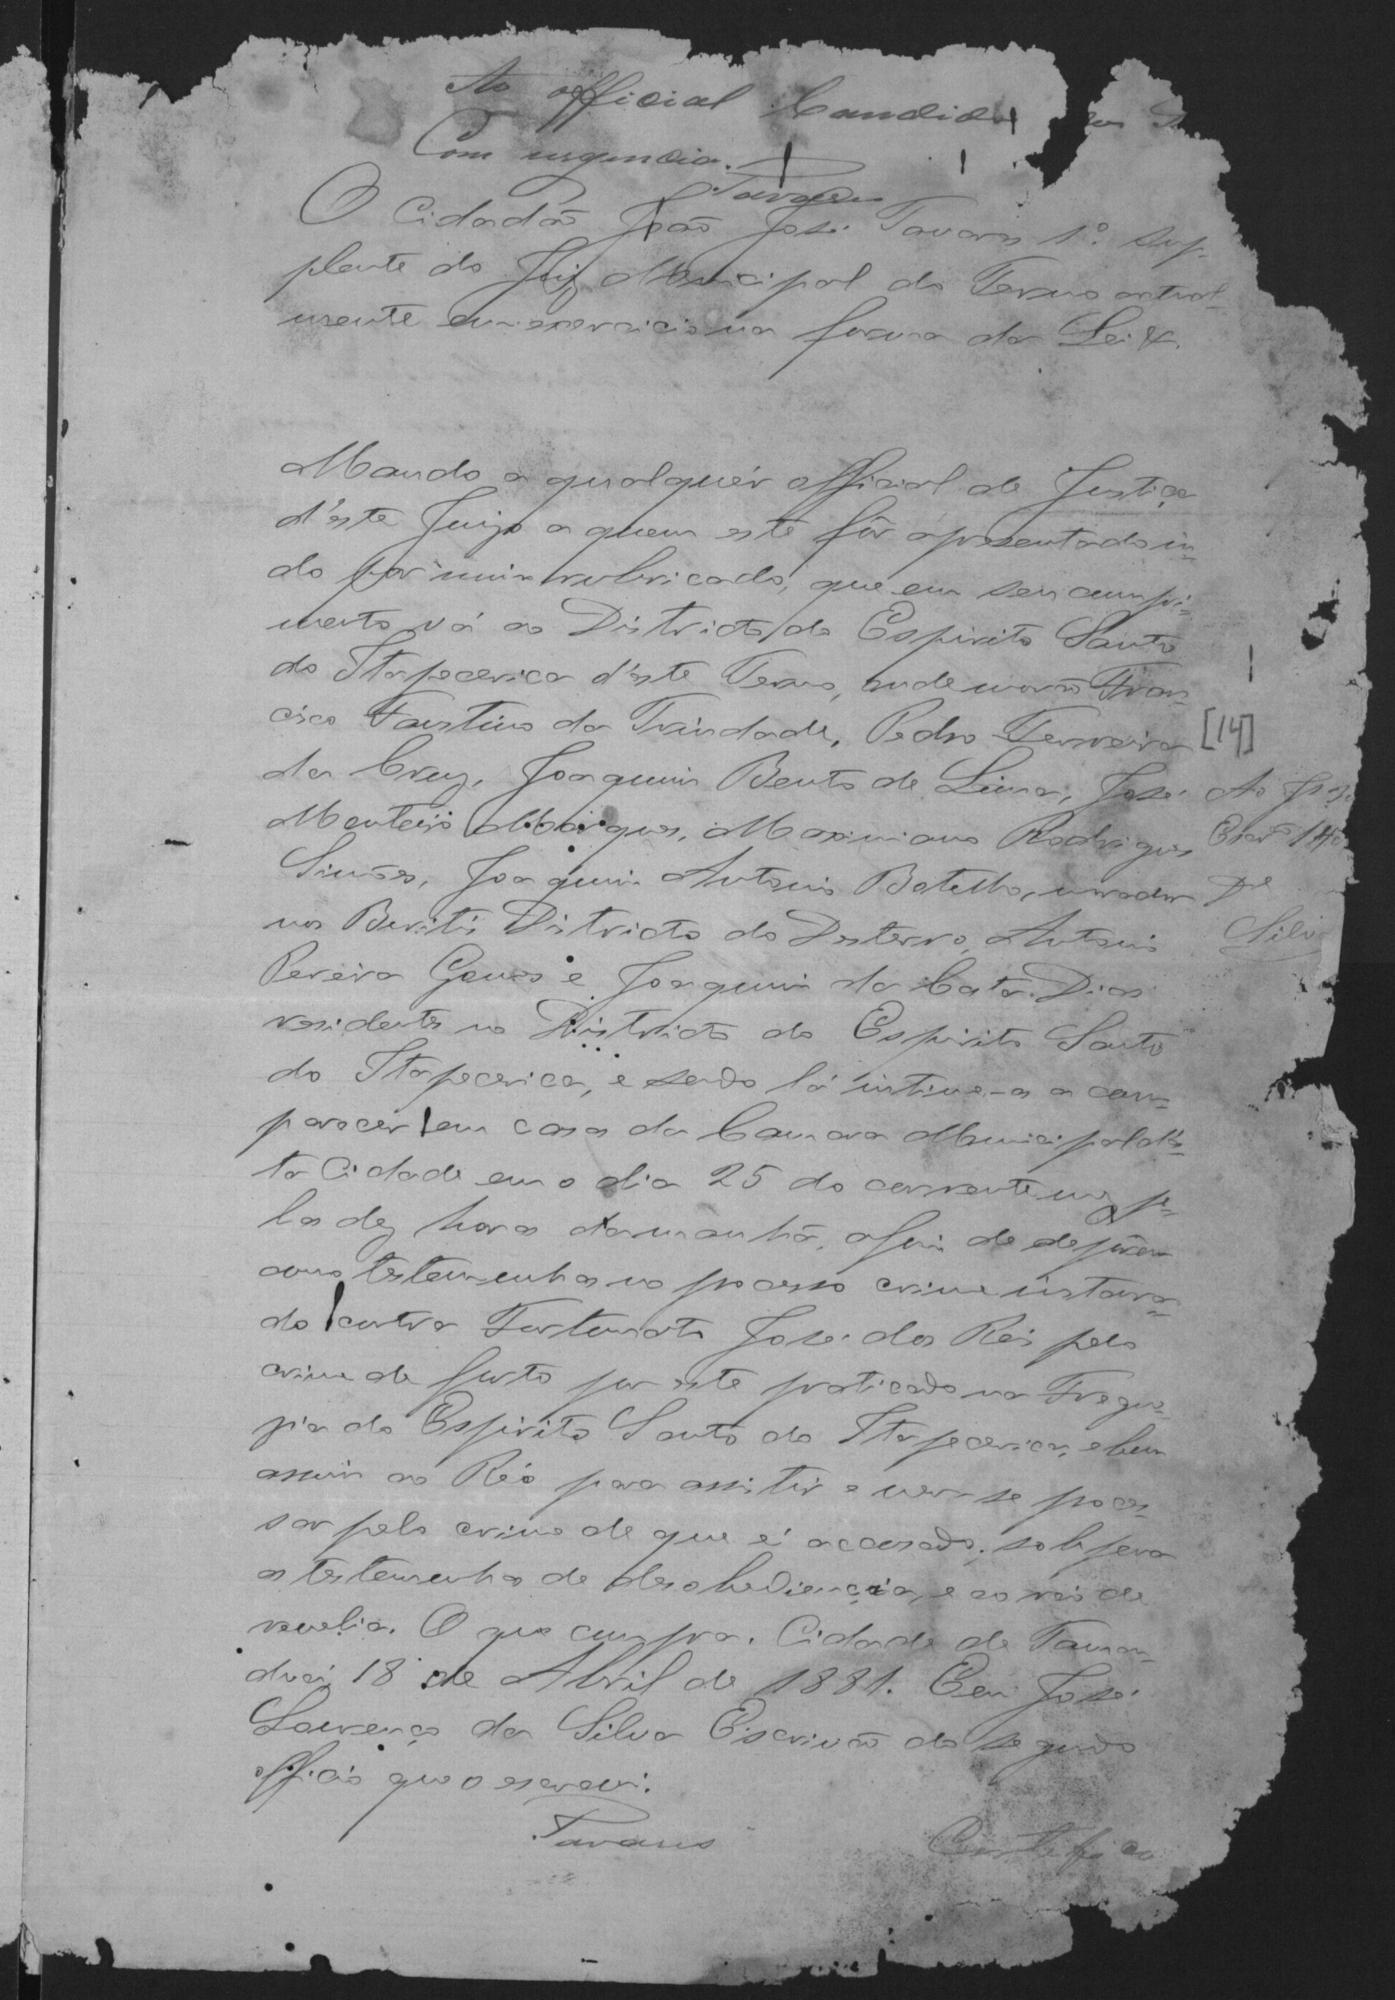 Ao official Candido
Com urgencia.
Tavares
O Cidadão João José Tavares 1º sup-
plente do Juiz Municipal do Termo actual-
mente em exercicio na forma da Lei &.
Mando a qualquér official de Justiça
d'este Juizo a quem este fôr apresentado in-
do por mim rubricado, que em seu cumpri-
mento vá ao Districto do Espirito Santo
do Itapecerica d'este Termo, onde morão Fran-
cisco Faustino da Trindade, Pedro Ferreira
da Cruz, Joaquim Bento de Lima, José
Monteiro Marques, Maximiano Rodrigues
Simões, Joaquim Antonio Botelho, morador
no Buritis Districto do Desterro, Antonio
Pereira Gomes e Joaquim da Costa Dias
residentes no Districto do Espirito Santo
do Itapecerica, e sendo lá intime-os a com-
parecer em casa da Camara Municipal d'es-
ta Cidade em o dia 25 do corrente mez pe-
las dez horas da manhã, afim de depôrem
como testemunhas no processo crime instaura-
do contra Fortunato José dos Reis pelo
crime de furto por este praticado na Fregue-
zia do Espirito Santo do Itapecerica, e bem
assim ao Réo para assistir e ver-se proces-
sar pelo crime de que é accusado; sob pena
as testemunhas de desobediencia, e ao réo de
revelia. O que cumpra. Cidade de Taman-
duá 18 de Abril de 1881. Eu José
Lourenço da Silva Escrivão do segundo
officio que o escrevi.
Tavares
Certifico
[14]
Ao
Silva